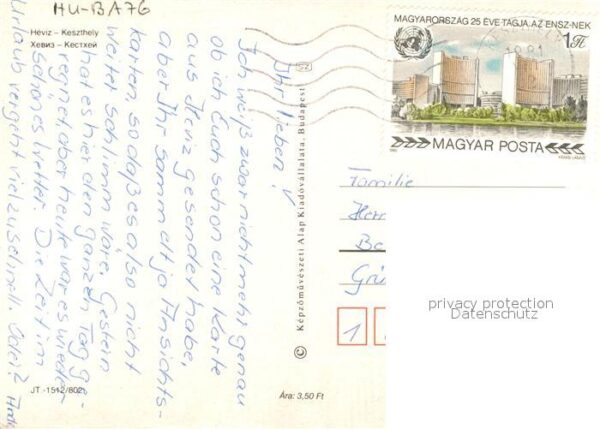 HU-BA76
Hévíz – Keszthely
Хевиз – Кестхей
MAGYARORSZÁG 25 ÉVE TAGJA AZ ENSZ-NEK
1 Ft
MAGYAR POSTA
Ihr Lieben!
Ich weiß zwar nicht mehr genau
ob ich Euch schon eine Karte
aus gesendet habe,
aber Ihr sammelt ja Ansichts-
karten, so daß es also nicht
weiter schlimm wäre. Gestern
hat es hier den ganzen Tag ge-
regnet aber heute war es wieder
schönes Wetter. Die Zeit im
Urlaub vergeht viel zu schnell. Oder?
© Képzőművészeti Alap Kiadóvállalata, Budapest
Familie
Her
Ba
Grü
1
privacy protection
Datenschutz
JT -1512/802
Ára: 3,50 Ft